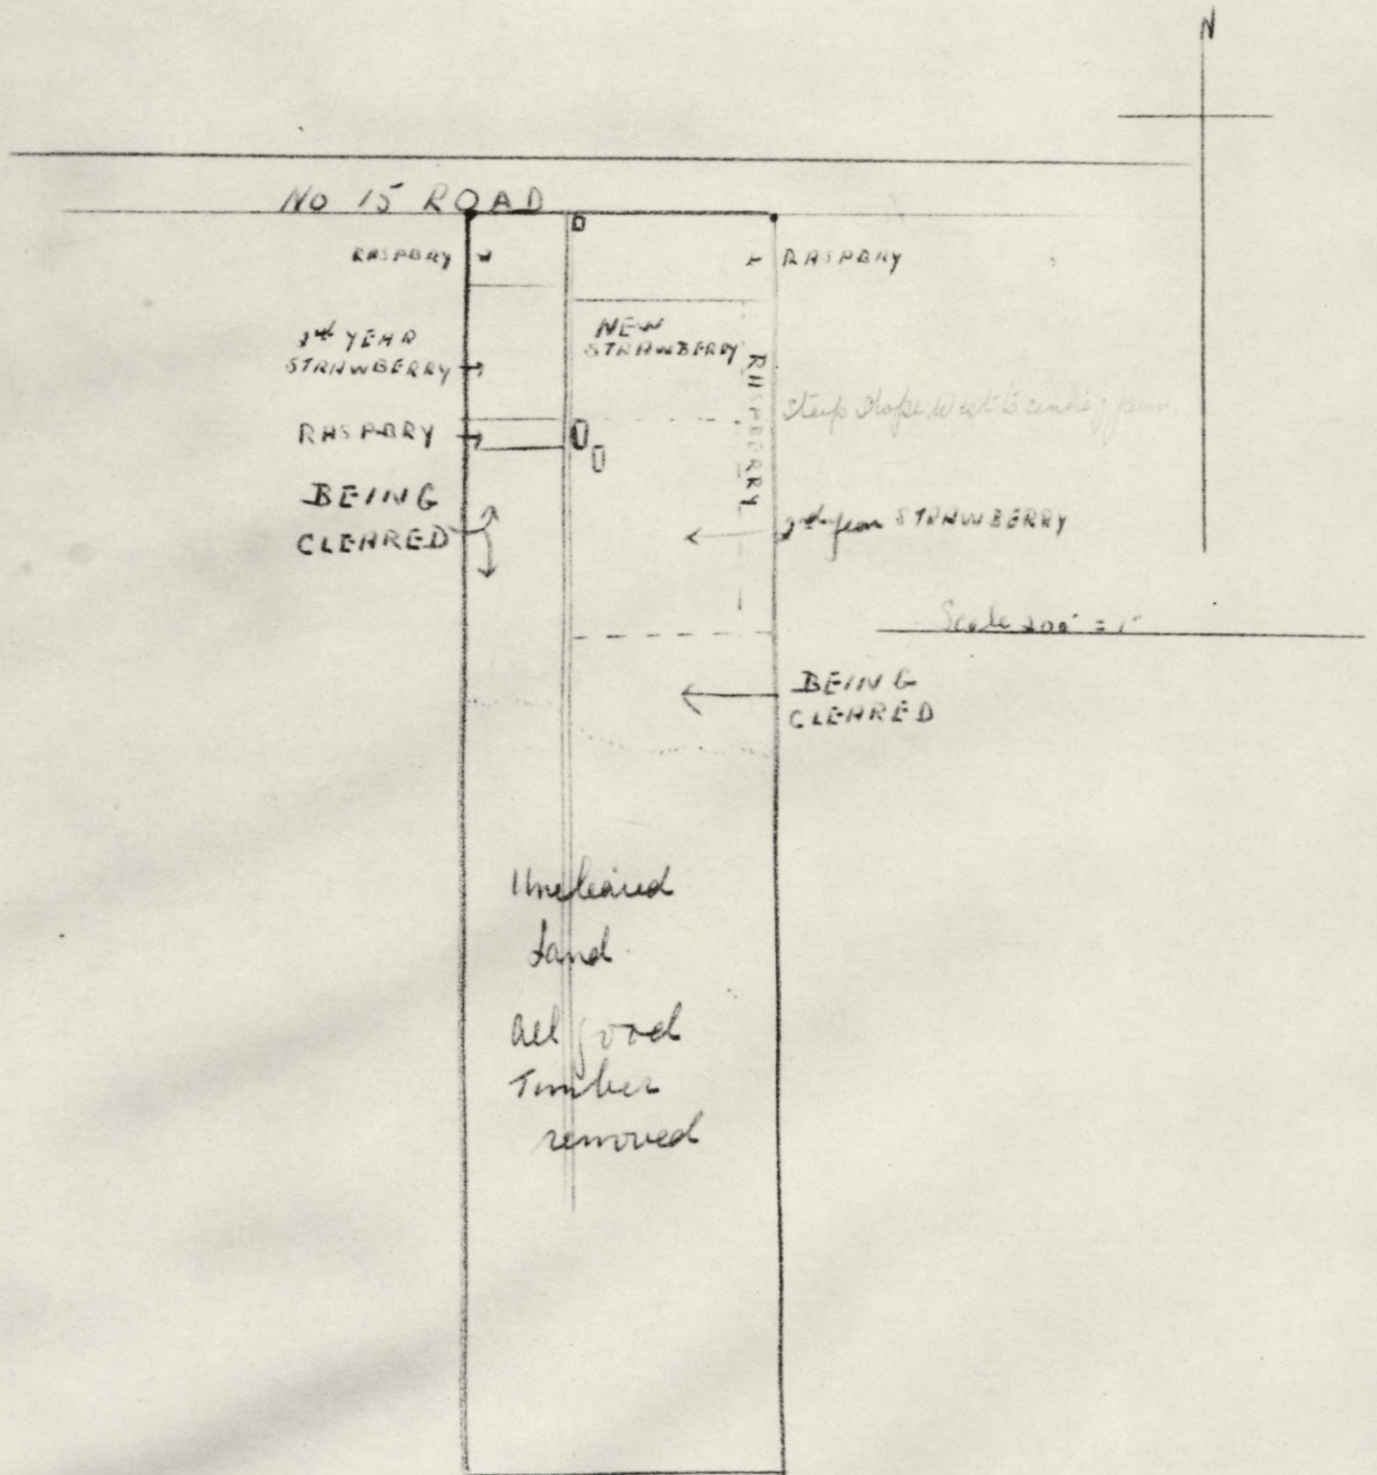 N
No 15 ROAD
RASPBRY
RASPBRY
YEAR
STRAWBERRY
NEW
STRAWBERRY
RASPBERRY
Steep Slope West to centre
RASPBRY
BEING
CLEARED
year STRAWBERRY
Scale 200' = 1"
BEING
CLEARED
Uncleared
Land
All good
Timber
removed